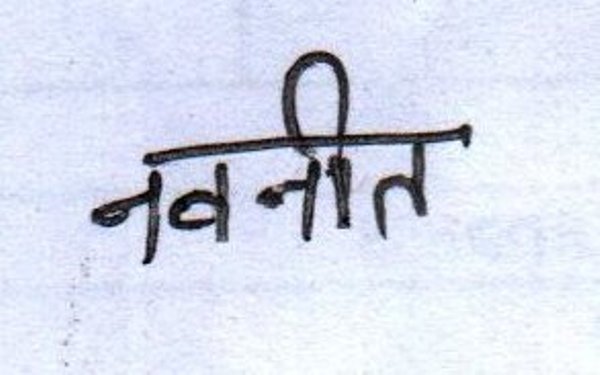 नवनीत